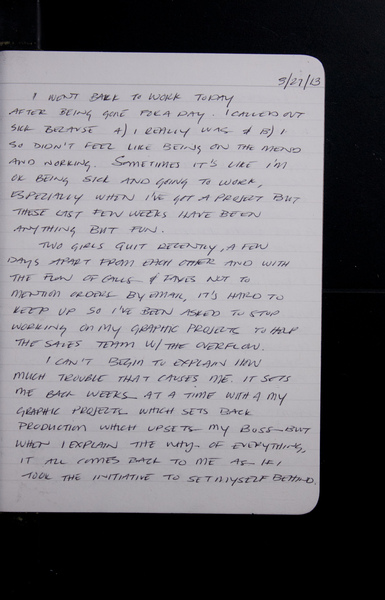 8/27/13
I WENT BACK TO WORK TODAY
AFTER BEING GONE FOR A DAY. I CALLED OUT
SICK BECAUSE A) I REALLY WAS & B) I
SO DIDN'T FEEL LIKE BEING ON THE MEND
AND WORKING. SOMETIMES IT'S LIKE I'M
OK BEING SICK AND GOING TO WORK,
ESPECIALLY WHEN I'VE GOT A PROJECT BUT
THESE LAST FEW WEEKS HAVE BEEN
ANYTHING BUT FUN.
TWO GIRLS QUIT RECENTLY, A FEW
DAYS APART FROM EACH OTHER AND WITH
THE FLOW OF CALLS & FAXES NOT TO
MENTION ORDERS BY EMAIL, IT'S HARD TO
KEEP UP SO I'VE BEEN ASKED TO STOP
WORKING ON MY GRAPHIC PROJECTS TO HELP
THE SALES TEAM W/ THE OVERFLOW.
I CAN'T BEGIN TO EXPLAIN HOW
MUCH TROUBLE THAT CAUSES ME. IT SETS
ME BACK WEEKS AT A TIME WITH MY
GRAPHIC PROJECTS WHICH SETS BACK
PRODUCTION WHICH UPSETS MY BOSS BUT
WHEN I EXPLAIN THE WHY OF EVERYTHING,
IT ALL COMES BACK TO ME AS IF I
TOOK THE INITIATIVE TO SET MYSELF BEHIND.